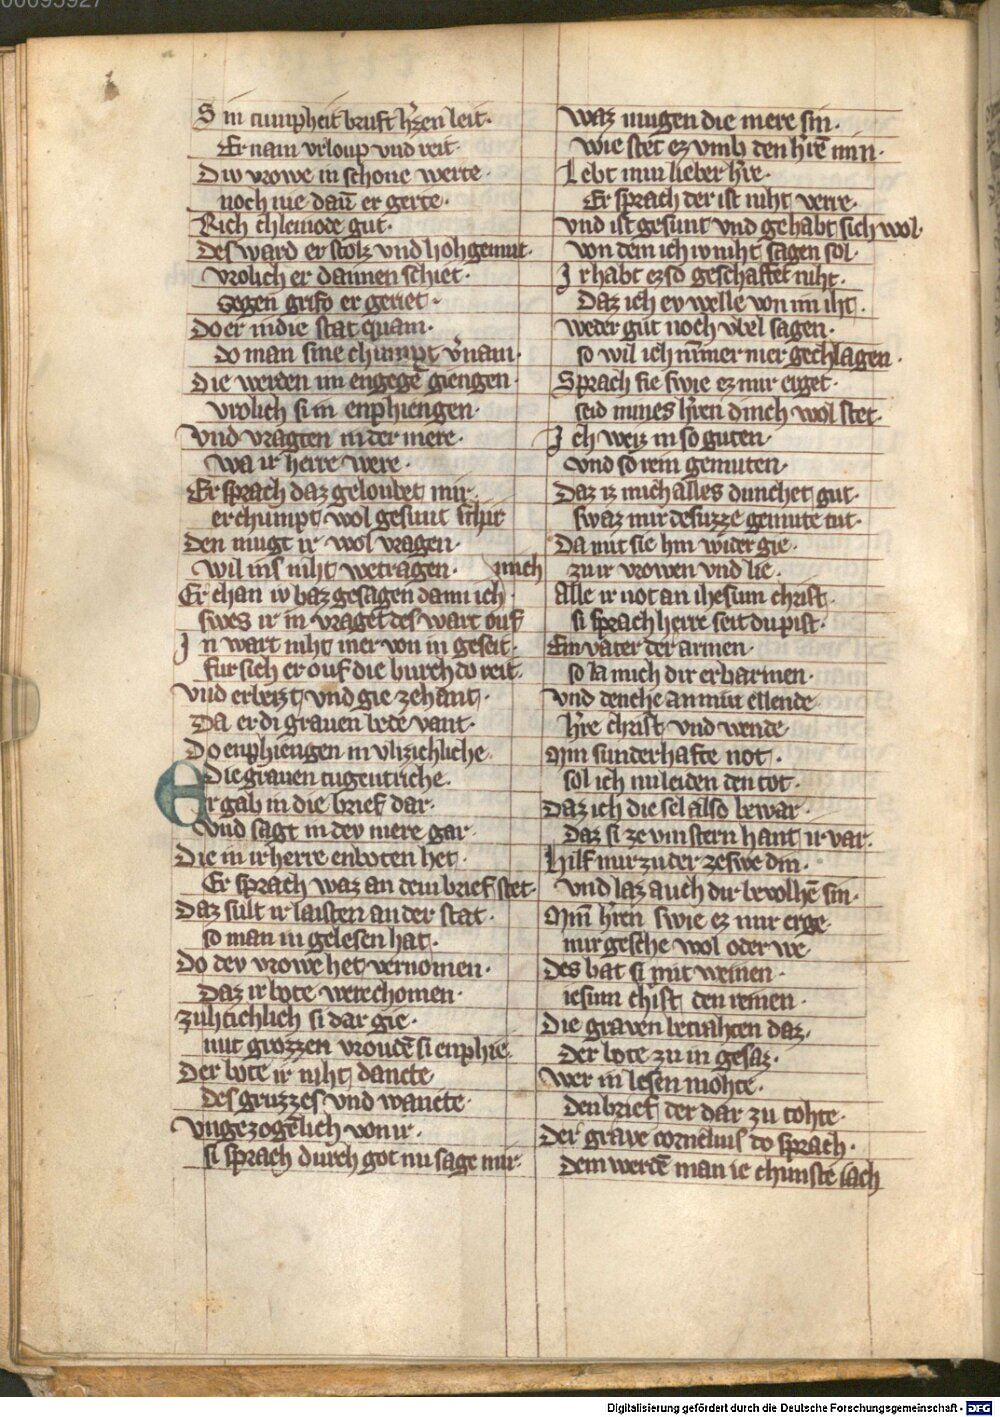 Sin tumpheit bruft h'zen leit·
Er nam vrloup vnd reit·
Div vrowe in schone werte·
noch nie dañ er gerte·
Rich chleinode gut·
Des ward er stolz vnd hohgemut·
vrolich er dannen schiet·
gegen grifo er geriet·
Do er in die stat quam·
do man sine chumpt v'nam·
die werden im engegē giengen·
vrolich si in enphiengen·
Vnd vragten in der mere·
wa ir herre were·
Er sprach daz geloubet mir
er chumpt wol gesunt schir
den mugt ir wol vragen·
wil ins niht wetragen· mich
Er chan iv baz gesagen dann ich·
swes ir in vraget des wart ouf
In wart niht mer von in geseit·
fur sich er ouf die burch do reit·
Vnd erbeizt vnd gie zehant·
Da er di grauen bede vant·
Do enphiengen in vlizichliche
Die grauen tugentriche·
Er gab in die brief dar·
Vnd sagt in dev mere gar
Die in ir herre enboten het·
Er sprach waz an dem brief stet·
Daz sult ir laisten an der stat·
so man in gelesen hat·
Do dev vrowe het vernomen·
Daz ir bote were chomen·
zuhtichlich si dar gie·
mit grozzen vroudē si enphie
Der bote ir niht dancte
des gruzzes vnd wancte·
Vngezogēlich von ir·
si sprach durch got nu sage mir·
Waz mugen die mere sin·
wie stet ez vmb den h'rē min·
Lebt min lieber h're·
Er sprach der ist niht verre·
Vnd ist gesunt vnd gehabt sich wol·
von dem ich iv niht sagen sol·
Ir habt ez so geschaffet niht·
Daz ich ev welle von im iht·
weder gut noch vbel sagen·
so wil ich nimmer mer gechlagen·
Sprach sie swie ez mir erget·
seid mines h'ren dinch wol stet·
Ich weiz in so guten·
vnd so rein gemuten·
Daz iz mich alles dunchet gut·
swaz mir de suzze gemute tut·
Da mit sie hin wider gie·
zu ir vrowen vnd lie·
Alle ir not an ihesum christ·
si sprach herre seit du pist·
Ein vater der armen·
so la mich dir erbarmen·
vnd denche an min ellende
h're christ vnd wende
Min sunderhafte not·
sol ich nu leiden den tot·
Daz ich die sel also bewar·
Daz si ze vinstern hant ir var·
Hilf mir zu der zeswe din·
vnd laz auch dir bevolhē sin·
Minē h'ren swie ez mir erge
mir geschē wol oder we·
Des bat si mit weinen·
iesum christ den reinen·
Die graven betrahten daz·
Der bote zu in gesaz·
wer in lesen mohte·
den brief der dar zu tohte·
Der grave cornelius do sprach·
dem werdē man ie chunste iach
Digitalisierung gefördert durch die Deutsche Forschungsgemeinschaft - DFG